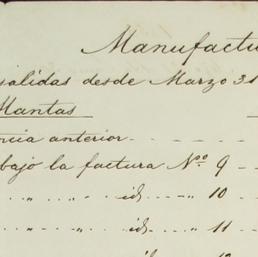 Manufactu
salidas desde Marzo 31
Mantas
ncia anterior - - -
bajo la factura Nos 9 -
" " " id " 10 -
" " " id " 11 -
" " " id " 12